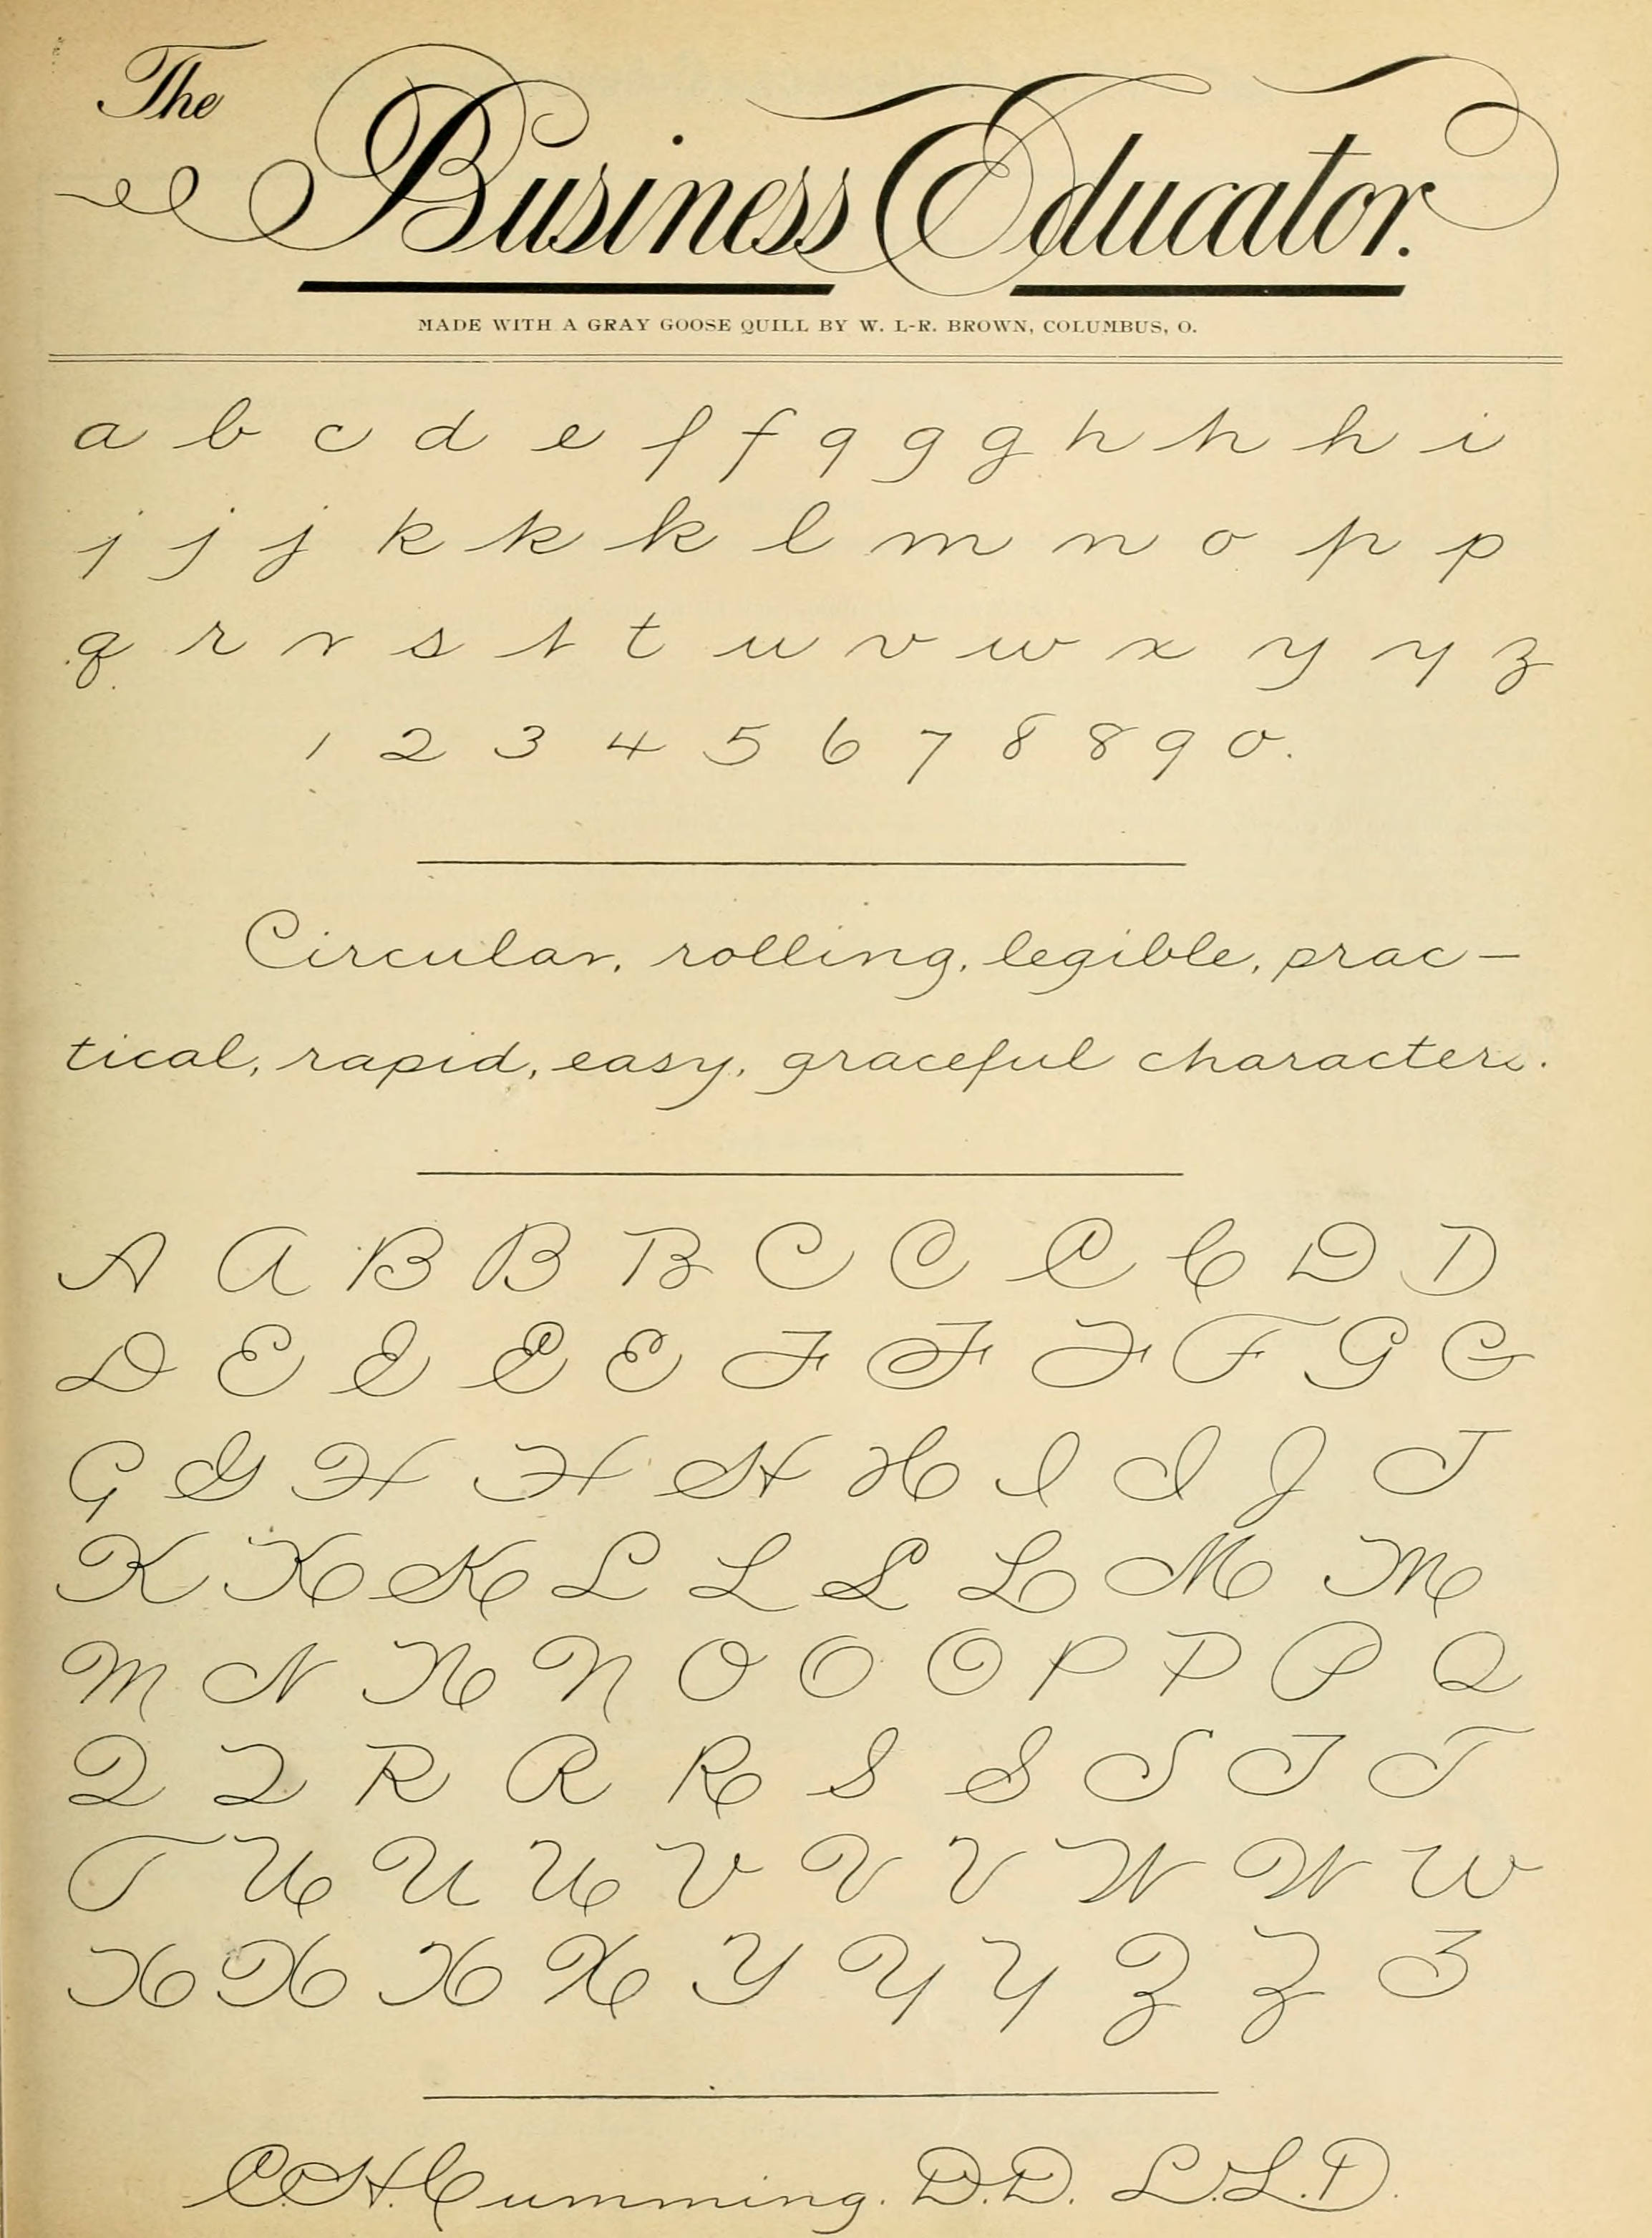 The
Business Educator.
MADE WITH A GRAY GOOSE QUILL BY W. L-R. BROWN, COLUMBUS, O.
a b c d e f f g g g h h h i
j j j k k k l m n o p p
q r r s t t u v w x y y z
1 2 3 4 5 6 7 8 8 9 0.
Circular, rolling, legible, prac-
tical, rapid, easy, graceful characters.
A A B B B C C C C D D
D E E E E F F F F G G
G G H H H H I I J J
K K K L L L L M M
M N N N O O O P P P Q
Q Q R R R S S S T T
T U U U V V V W W W
X X X X Y Y Y Z Z Z
C.H. Cumming. D.D. L.L.D.